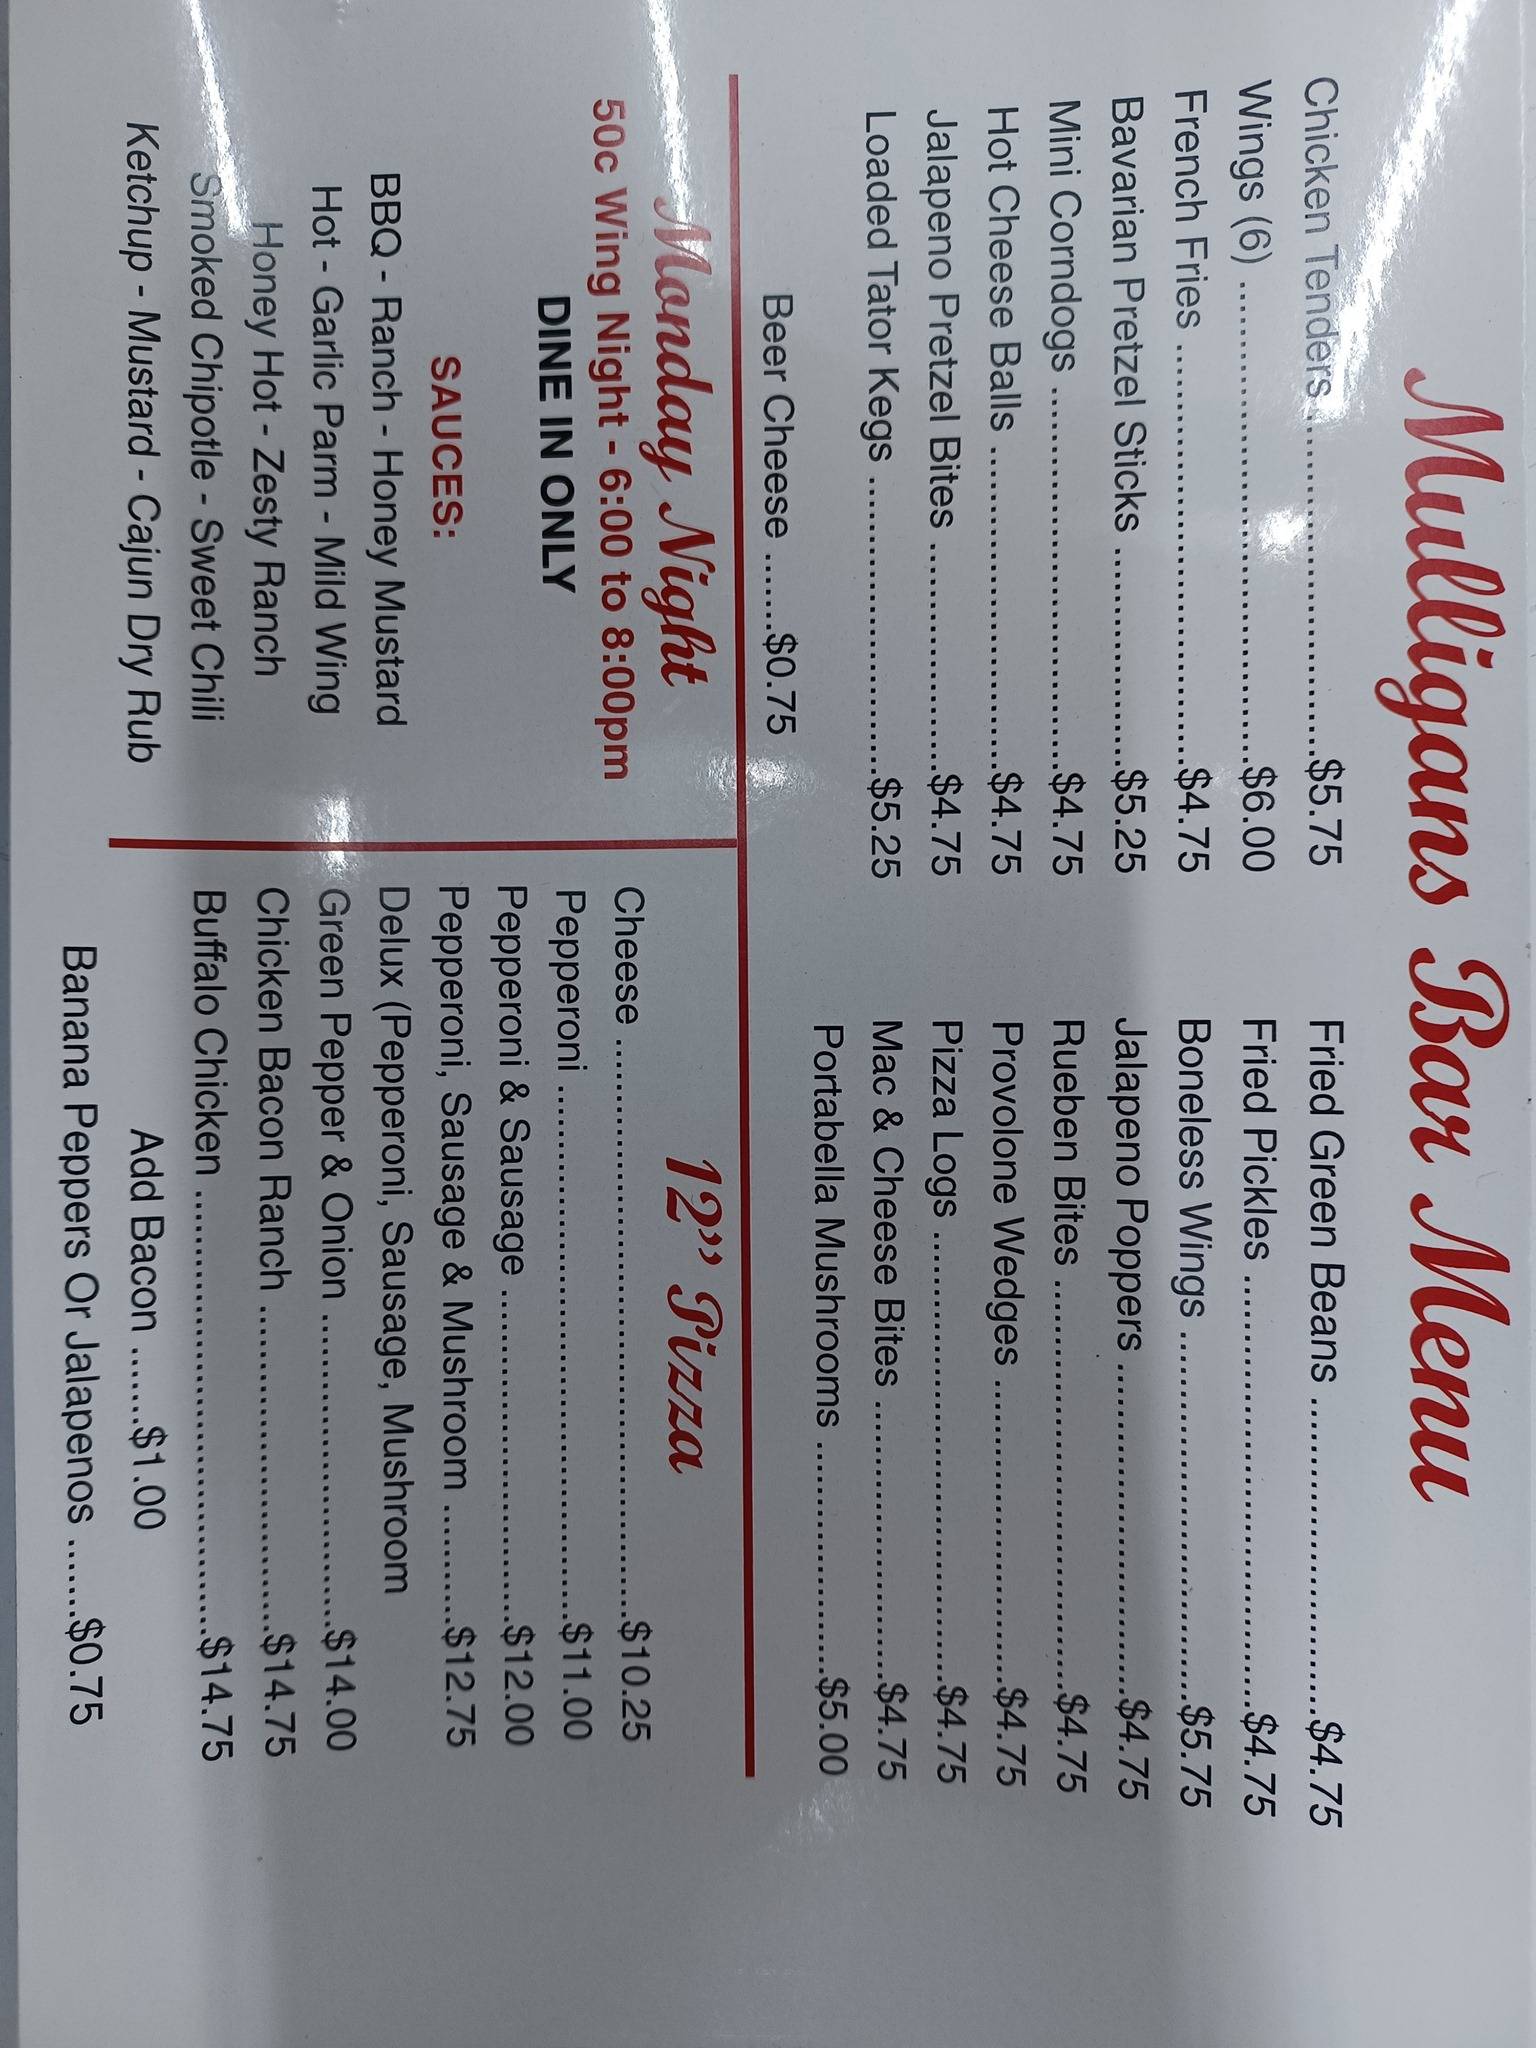 Mulligans Bar Menu
Chicken Tenders..............................$5.75
Wings (6) ..........................................$6.00
French Fries ......................................$4.75
Bavarian Pretzel Sticks .....................$5.25
Mini Corndogs ..................................$4.75
Hot Cheese Balls ..............................$4.75
Jalapeno Pretzel Bites ......................$4.75
Loaded Tator Kegs ...........................$5.25
Beer Cheese .......$0.75
Fried Green Beans ............................$4.75
Fried Pickles ......................................$4.75
Boneless Wings ................................$5.75
Jalapeno Poppers .............................$4.75
Rueben Bites ....................................$4.75
Provolone Wedges ...........................$4.75
Pizza Logs ........................................$4.75
Mac & Cheese Bites .........................$4.75
Portabella Mushrooms ......................$5.00
Monday Night
50c Wing Night - 6:00 to 8:00pm
DINE IN ONLY
SAUCES:
BBQ - Ranch - Honey Mustard
Hot - Garlic Parm - Mild Wing
Honey Hot - Zesty Ranch
Smoked Chipotle - Sweet Chili
Ketchup - Mustard - Cajun Dry Rub
12” Pizza
Cheese ....................................................$10.25
Pepperoni ................................................$11.00
Pepperoni & Sausage .............................$12.00
Pepperoni, Sausage & Mushroom ..........$12.75
Delux (Pepperoni, Sausage, Mushroom
Green Pepper & Onion ............................$14.00
Chicken Bacon Ranch .............................$14.75
Buffalo Chicken .......................................$14.75
Add Bacon .......$1.00
Banana Peppers Or Jalapenos .......$0.75